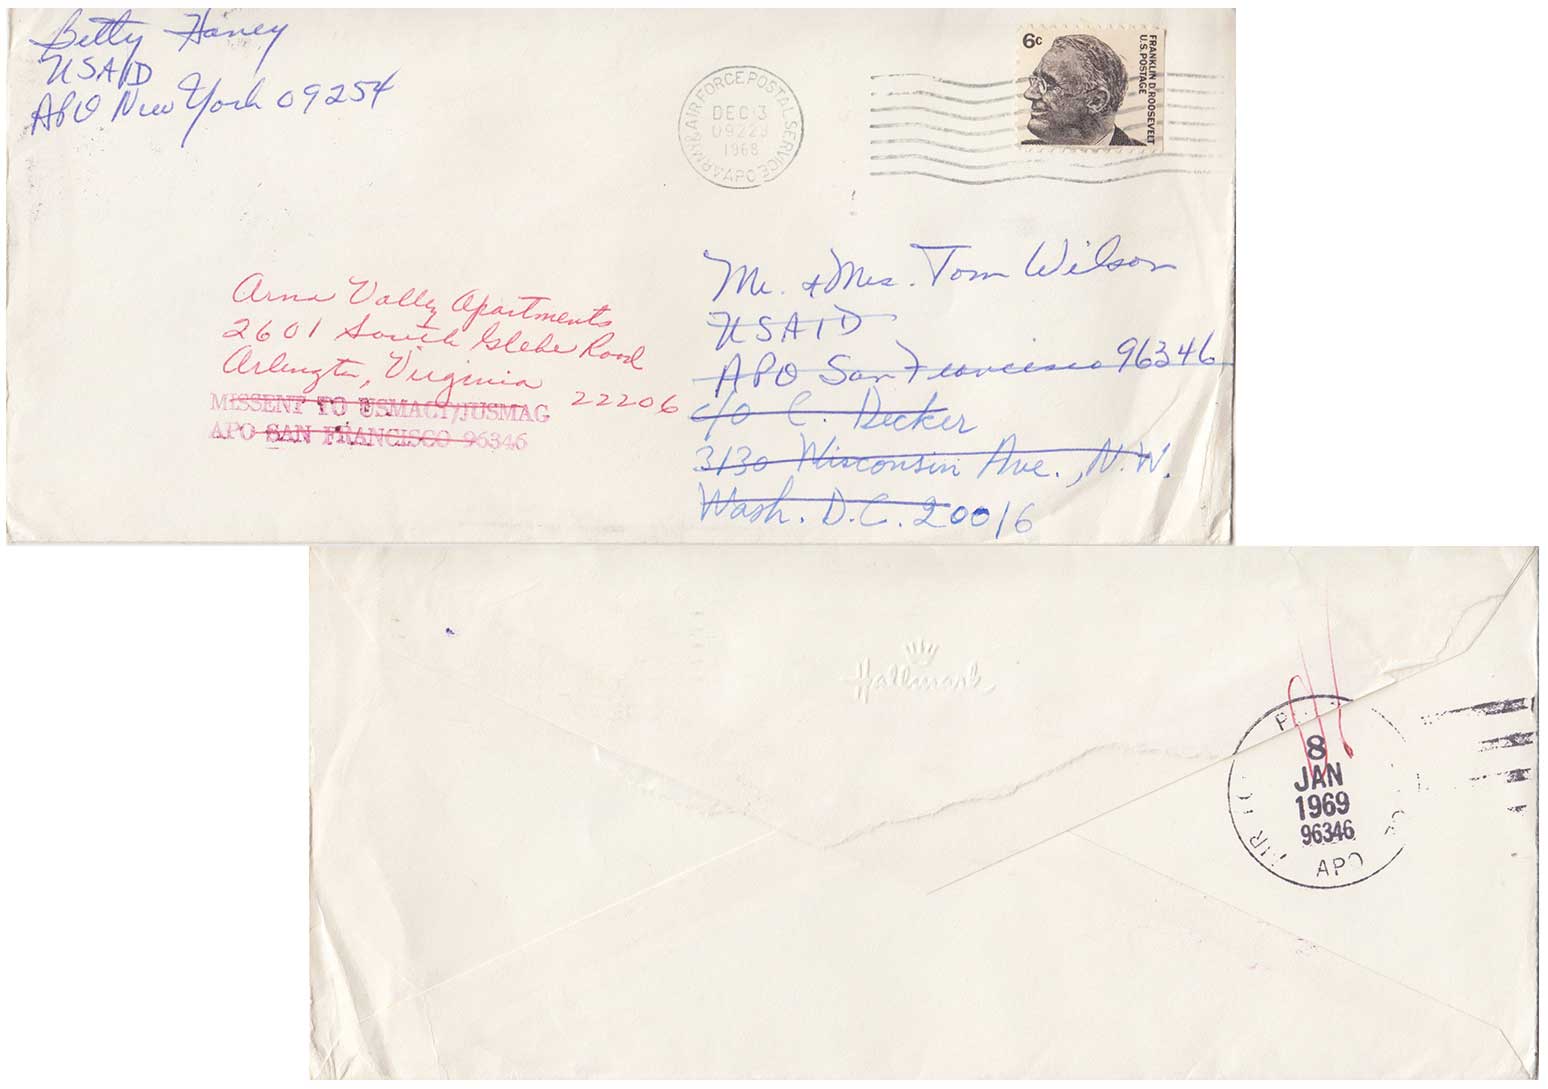 Betty Haney
USAID
APO New York 09254
ARMY & AIR FORCE POSTAL SERVICE
DEC 13
09223
1968
APO
6c
FRANKLIN D. ROOSEVELT
U.S. POSTAGE
Mr. & Mrs. Tom Wilson
USAID
APO San Francisco 96346
c/o C. Decker
3130 Wisconsin Ave., N.W.
Wash. D.C. 20016
Arna Valley Apartments
2601 South Glebe Road
Arlington, Virginia
22206
MISSENT TO USMACT/JUSMAG
APO SAN FRANCISCO 96346
Hallmark
8
JAN
1969
96346
APO